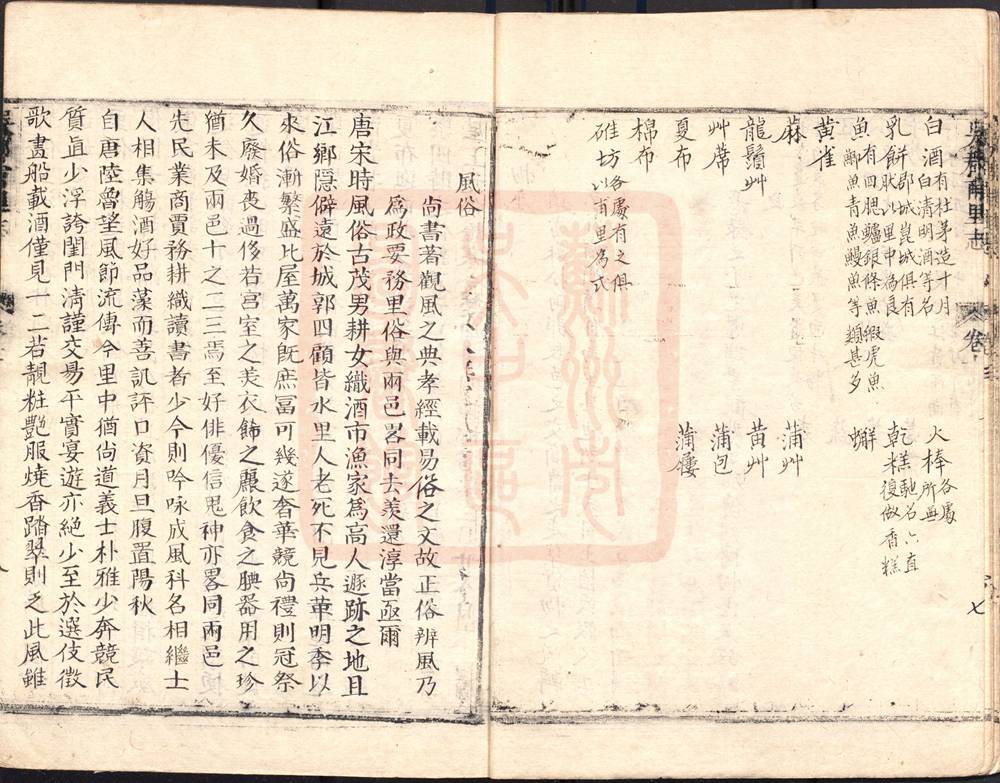 白酒有杜茅造十月白清明酒等名
火棒各處所無
乳餅郡城崑城俱有以里中為良
乾糕馳名六直復做香糕
魚有四腮鱸銀條魚鰕虎魚鯽魚青魚鰻魚等類甚多
蠏
黃雀
蔴
蒲艸
龍鬚艸
黃艸
艸蓆
蒲包
夏布
蒲𩌏
棉布
碓坊各處有之俱以甫里為式
七
風俗
尚書著觀風之典孝經載易俗之文故正俗辨風乃
為政要務里俗與兩邑畧同去羨還淳當亟爾
唐宋時風俗古茂男耕女織酒市漁家為高人遯跡之地且
江鄉隱僻遠於城郭四顧皆水里人老死不見兵革明季以
來俗漸繁盛比屋萬家旣庶富可幾遂奢華競尚禮則冠祭
久廢婚喪過侈若宮室之美衣飾之麗飲食之腆器用之珍
猶未及兩邑十之二三焉至好俳優信鬼神亦畧同兩邑
先民業商賈務耕織讀書者少今則吟咏成風科名相繼士
人相集觴酒好品藻而善訊評口資月旦腹置陽秋
自唐陸魯望風節流傳今里中猶尚道義士朴雅少奔競民
質直少浮誇閨門清謹交易平實宴遊亦絕少至於選伎徵
歌畫船載酒僅見一二若靚粧艷服燒香踏翠則乏此風雖